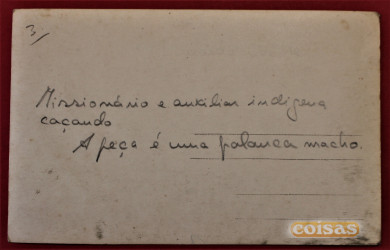 3/
Missionário e auxiliar indigena
caçando
A peça é uma palanca macho.
coisas